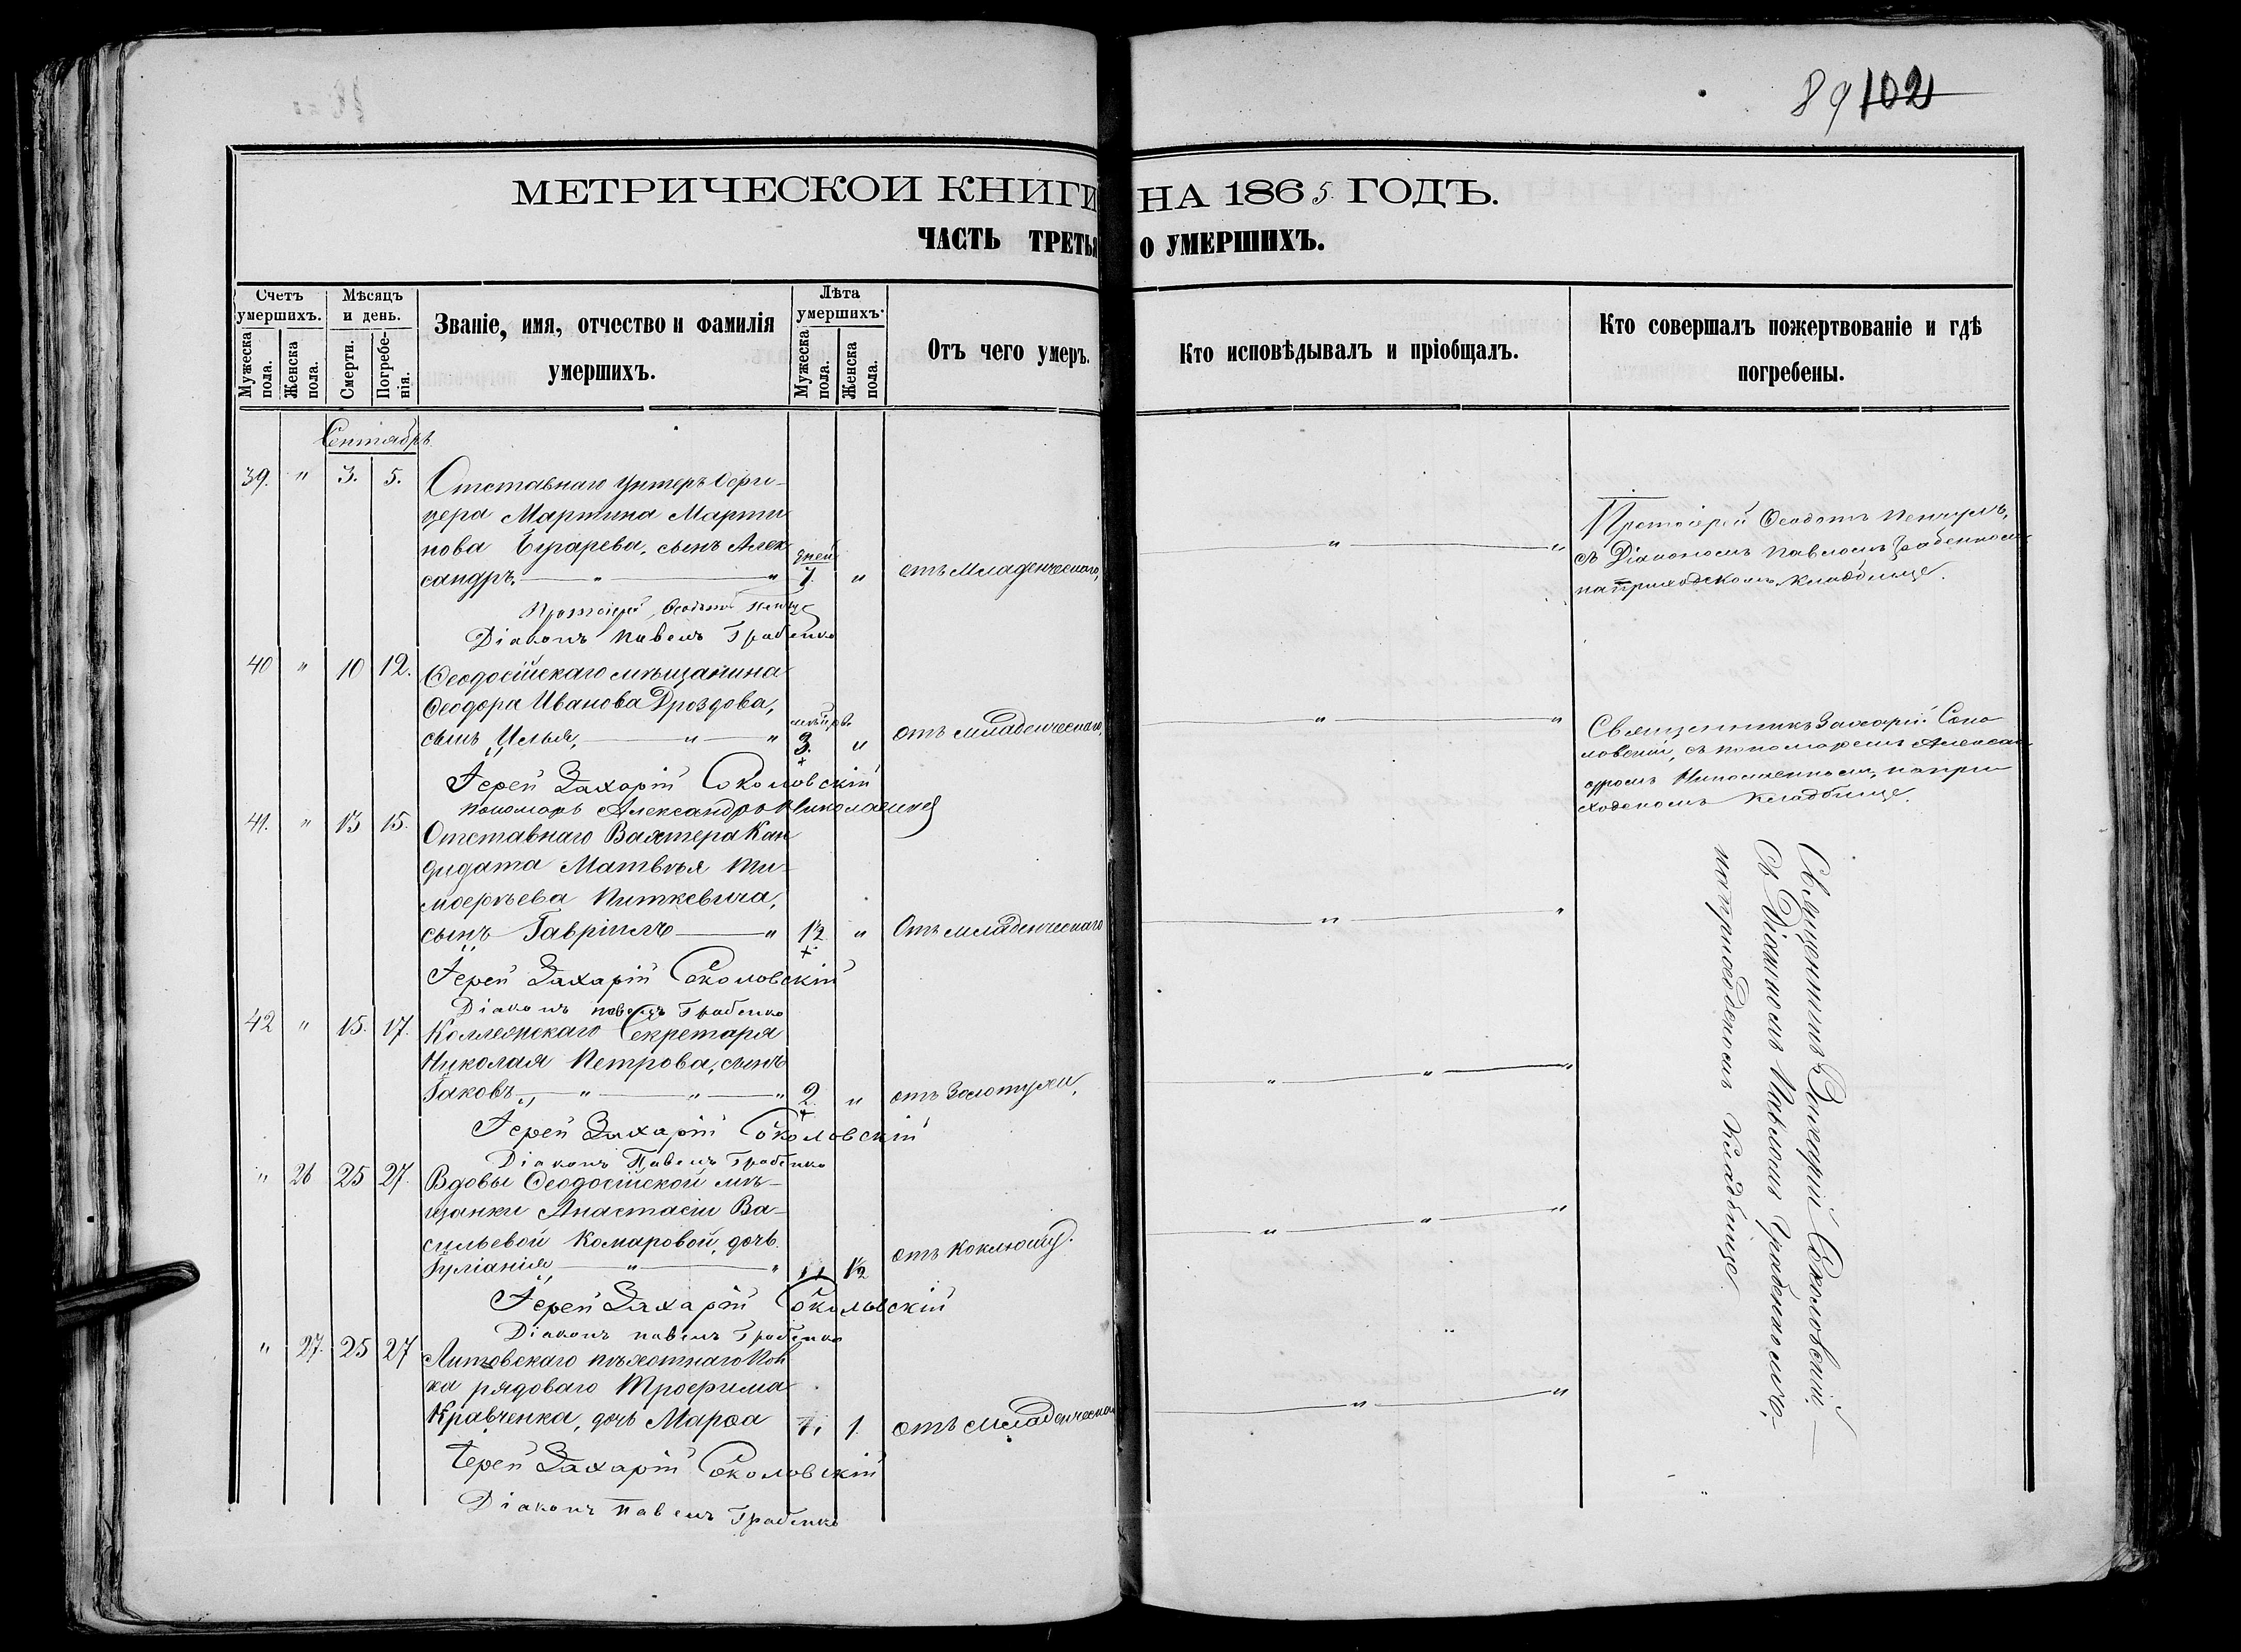 89 102
МЕТРИЧЕСКОЙ КНИГИ НА 1865 ГОДЪ.
ЧАСТЬ ТРЕТЬЯ О УМЕРШИХЪ.
Счетъ умершихъ.
Мужеска пола.
Женска пола.
Мѣсяцъ и день.
Смерти.
Погребенія.
Званіе, имя, отчество и фамилія умершихъ.
Лѣта умершихъ.
Мужеска пола.
Женска пола.
Отъ чего умеръ.
Кто исповѣдывалъ и пріобщалъ.
Кто совершалъ пожертвованіе и гдѣ погребены.
Сентябрь
39. " 3. 5. Отставнаго Унтеръ Офи-
цера Мартина Марти
нова сынъ Алек
сандръ, " " дней 7. " отъ Младенческаго,
Протоіерей Ѳеодотъ
Діаконъ Павелъ Грабенко
Протоіерей Ѳеодотъ
съ Діакономъ Павломъ Грабенкомъ
на приходскомъ кладбище.
40 " 10 12. Ѳеодосійскаго мѣщанина
Ѳеодора Иванова Дроздова,
сынъ Илья, " " 3. " отъ младенческаго,
Іерей Захарій Соколовскій
Пономарь Александръ
Священникъ Захарій Соко
ловскій, съ пономаремъ Алексан
дромъ на при
ходскомъ кладбище.
41. " 13 15. Отставнаго Вахтера Кан
дидата Матвѣя Ти-
моѳеева Питкевича,
сынъ Гавріилъ " 1½ " Отъ младенческаго
Іерей Захарій Соколовскій
Діаконъ Павелъ Грабенко
42 " 15. 17. Коллежскаго Секретаря
Николая Петрова, сынъ
Іаковъ, " " " 2. " отъ Золотухи,
Іерей Захарій Соколовскій
Діаконъ Павелъ Грабенко
" 26 25 27. Вдовы Ѳеодосійской мѣ-
щанки Анастасіи Ва-
сильевой Комаровой, дочь
Іуліанія " " 1½ отъ Коклюшу.
Іерей Захарій Соколовскій
Діаконъ Павелъ Грабенко
" 27. 25 27 Литовскаго пѣхотнаго Пол
ка рядоваго Трофима
Кравченка, дочь Марѳа 1. отъ Младенческа
Іерей Захарій Соколовскій
Діаконъ Павелъ Грабенко
Священникъ Захарій Соколовскій,
съ Діакономъ Павломъ Грабенкомъ,
на приходскомъ кладбище